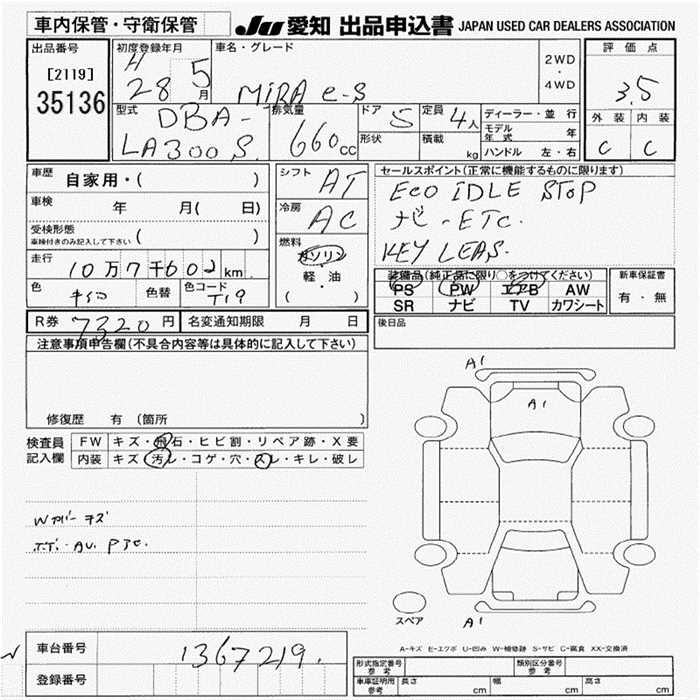 車内保管・守衛保管
JU 愛知 出品申込書 JAPAN USED CAR DEALERS ASSOCIATION
出品番号
[2119]
35136
初度登録年月
H 28 5月
車名・グレード
MIRA e-s
2WD
・
4WD
評価点
3.5
外装 内装
C C
型式
DBA-
LA300S.
排気量
660cc
ドア 5
定員 4人
形状
積載 kg
ディーラー・並行
モデル年式 年
ハンドル 左・右
車歴 自家用・( )
車検 年 月( 日)
受検形態
車検付きのみ記入して下さい ( )
走行 10万7千602km
色 色替 色コード T19
シフト AT
冷房 AC
燃料
ガソリン
軽・油
( )
セールスポイント(正常に機能するものに限ります)
ECO IDLE STOP
ナビ-ETC.
KEY LEAS.
装備品(純正品に限り○をつけてください)
PS PW エアB AW
SR ナビ TV カワシート
新車保証書
有・無
R券 7320円 名変通知期限 月 日
後日品
注意事項申告欄(不具合内容等は具体的に記入して下さい)
修復歴 有(箇所 )
検査員記入欄
FW キズ・飛石・ヒビ割・リペア跡・X要
内装 キズ・汚レ・コゲ・穴・スレ・キレ・破レ
A1
A1
Wカバーキズ
A1
スペア
A-キズ E-エクボ U-凹み W-補修跡 S-サビ C-腐食 XX-交換済
車台番号 1367219.
登録番号
形式指定番号 参考
類別区分番号 参考
車庫証明用 参考 長さ cm 幅 cm 高さ cm